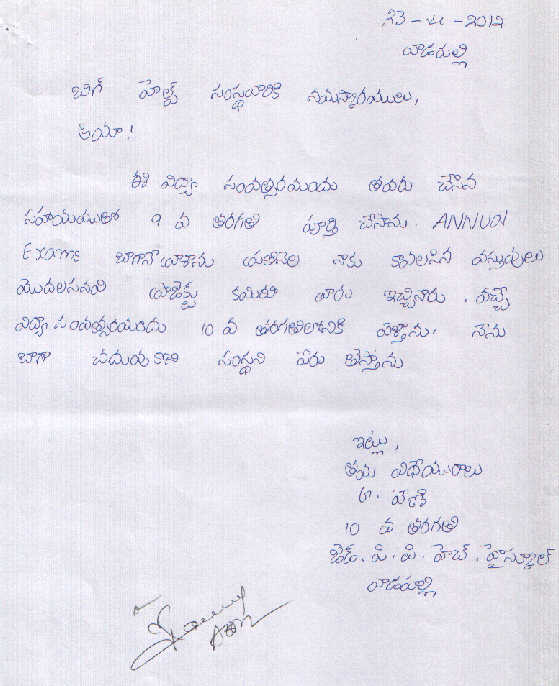 23 - 4 - 2012
వాడపల్లి
బిగ్ హెల్ప్ సంస్థవారికి నమస్కారములు,
అయ్యా!
ఈ విద్యా సంవత్సరమందు తమరు చేసిన
సహాయముతో 9 వ తరగతి పూర్తి చేసాను. ANNUAL
Exams బాగానే వ్రాశాను నాకు కావలసిన వస్తువులు
మొదలనవి కమిటీ వారు ఇచ్చినారు. వచ్చే
విద్యా సంవత్సరమందు 10 వ తరగతిలోనికి వెళ్తాను. నేను
బాగా చదువుకొని సంస్థని పేరు తెస్తాను
ఇట్లు,
తమ విధేయురాలు
10 వ తరగతి
జెడ్. పి. పి. హెచ్. హైస్కూల్
వాడపల్లి